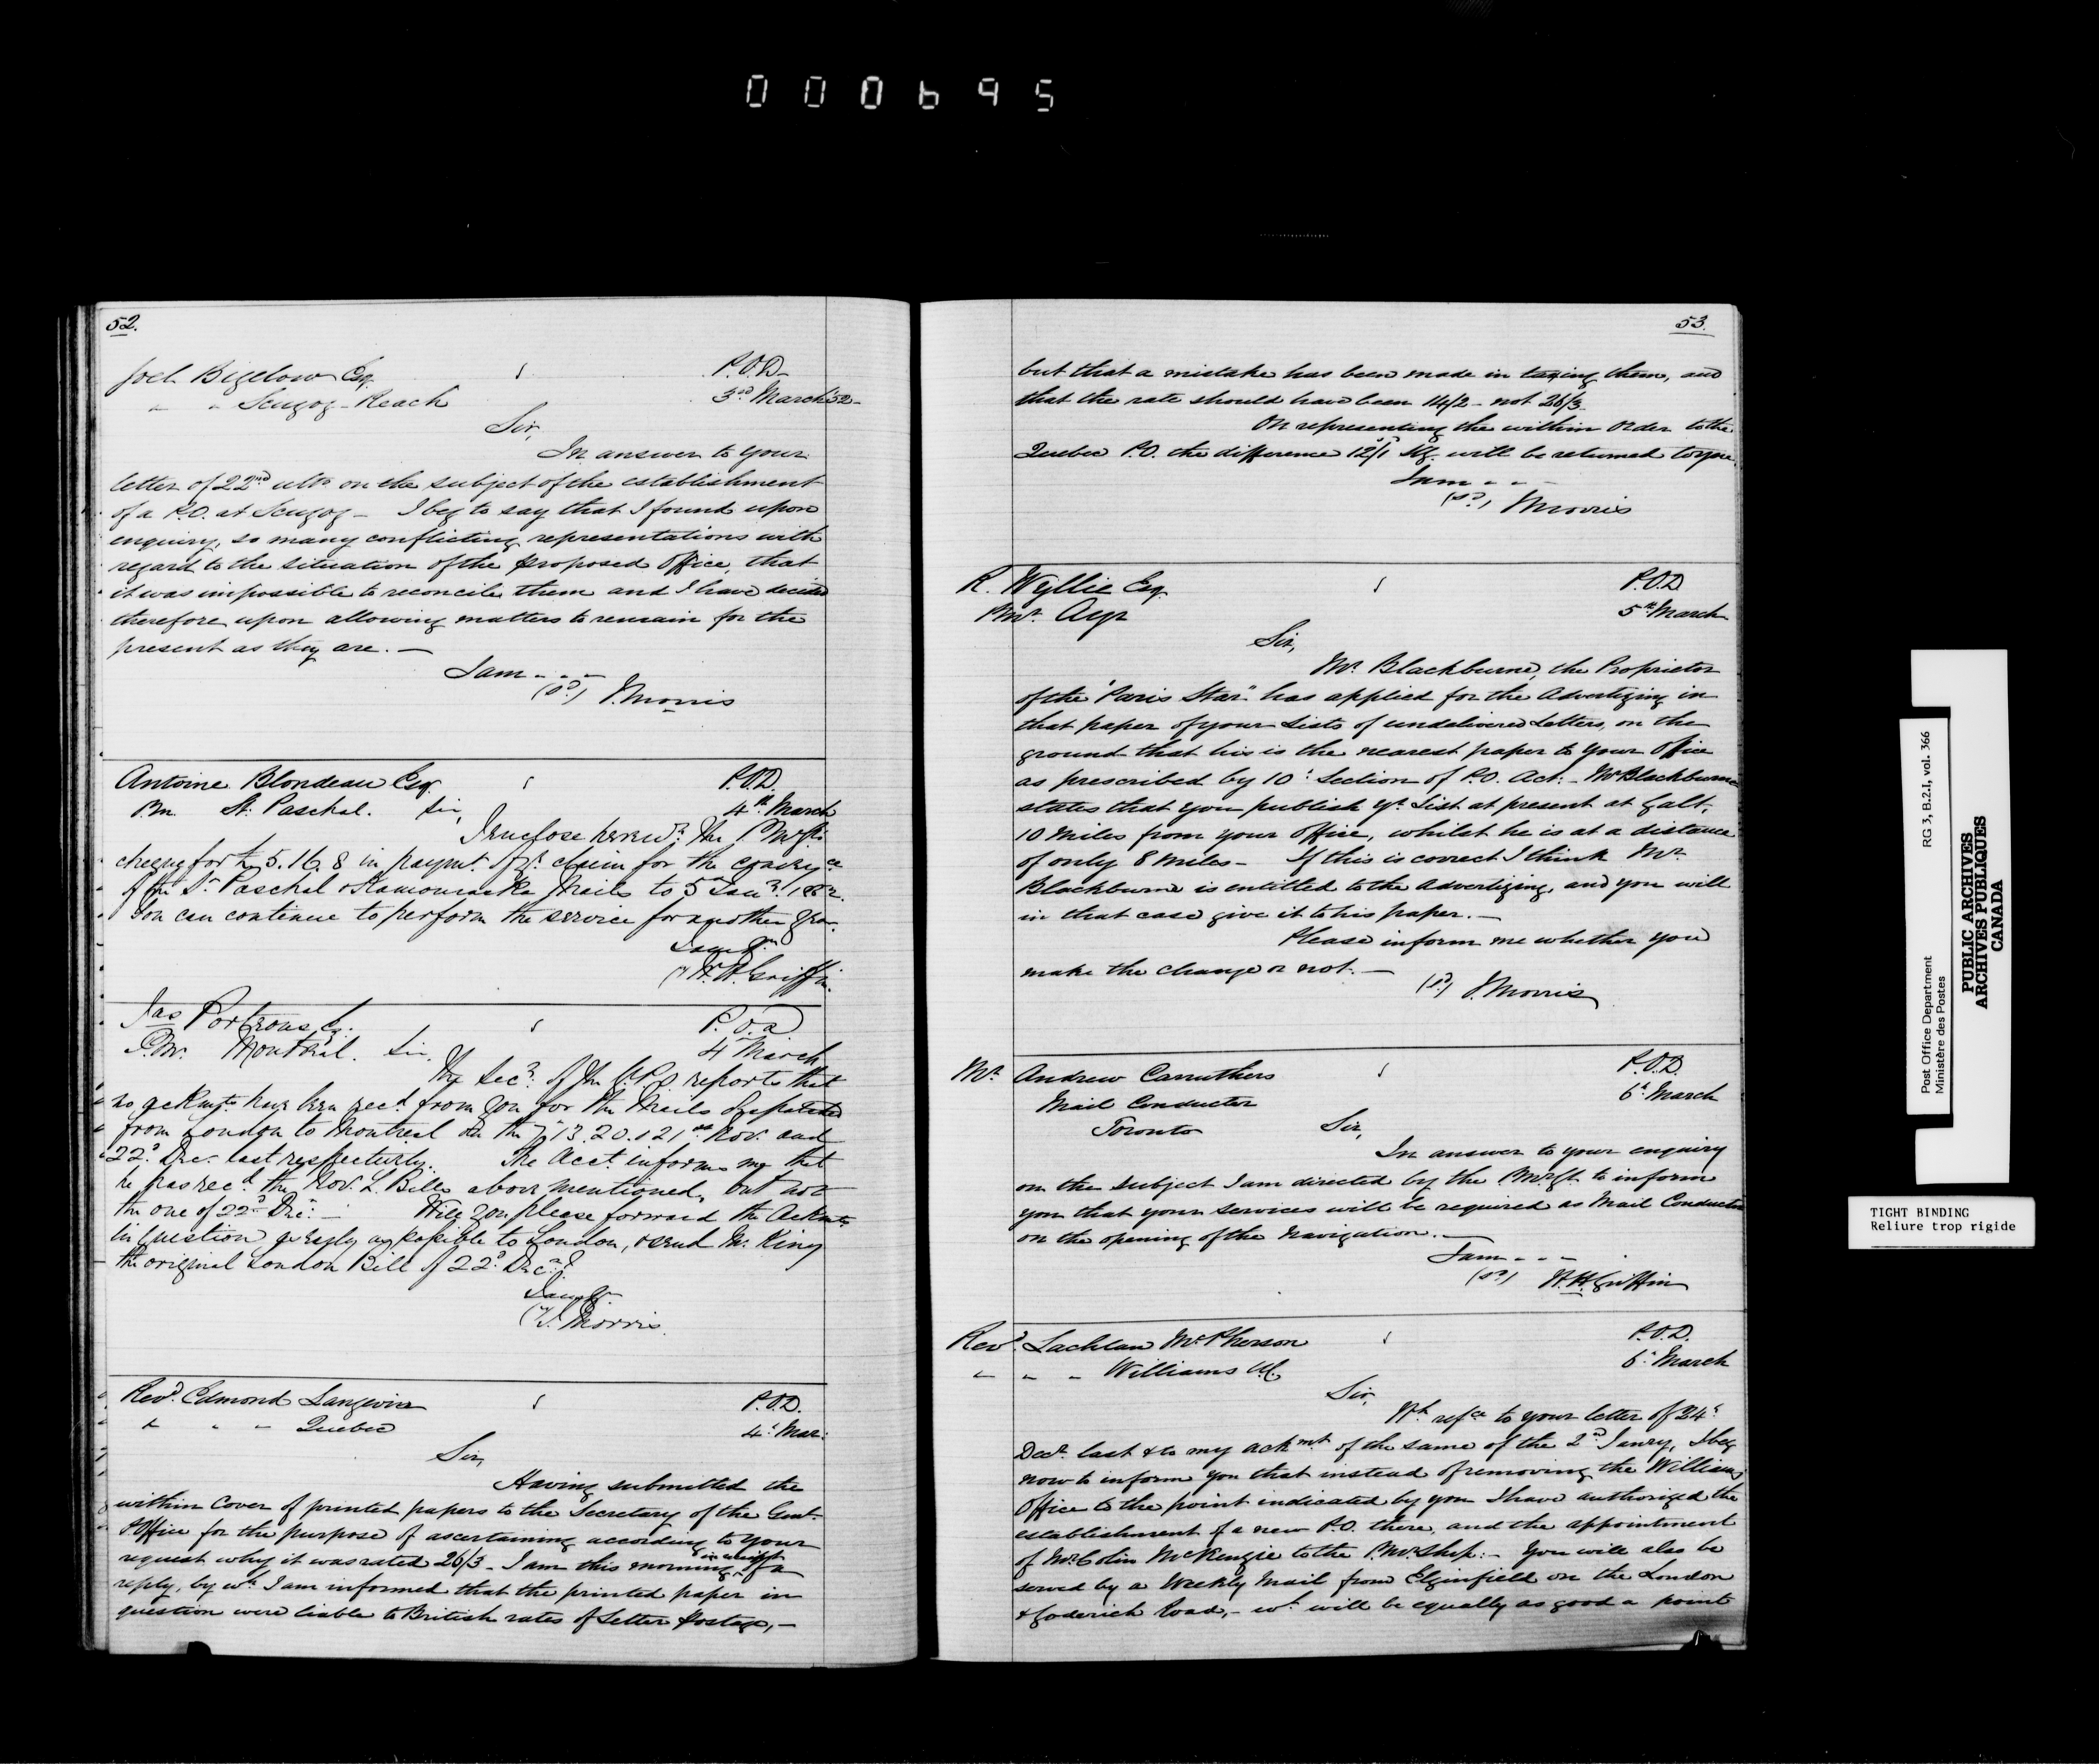 000695
52.
Joel Bigelow Esq. P.O.D.
" " Scugog-Reach 3rd March '52-
Sir,
In answer to your
letter of 22nd ulto on the subject of the establishment
of a P.O. at Scugog - I beg to say that I found upon
enquiry, so many conflicting representations with
regard to the situation of the proposed Office, that
it was impossible to reconcile them and I have decided
therefore upon allowing matters to remain for the
present as they are. -
I am - - -
(sd) J. Morris
Antoine Blondeau Esq. P.O.D.
P.m. St. Paschal. Sir, 4th March
I enclose herewh. the P.M.Gl's
cheque for £5.16.8 in paymt. of yr. claim for the conveyce
of the St. Paschal & Kamouraska Mails to 5 Jany. 1852.
You can continue to perform the service for another year.
I am &c
(") W.H. Griffin.
Jas Porteous, Esq. P.O.D
P.M. Montreal. Sir, 4 March
The Secy. of the G.P.O. reports that
no ackmts have been recd. from you for the Mails despatched
from London to Montreal on the 7, 13. 20. & 21st Nov. and
22d. Dec. last respectively. The Acct. informs me that
he has recd. the Nov. L. Bills above mentioned, but not
the one of 22d Dec. - Will you please forward the Ackmts
in question as early as possible to London, & send Mr. King
the original London Bill of 22d. Decr.?
I am &c
(") J. Morris.
Revd. Edmond Langevin P.O.D.
" " " Quebec 4th Mar:
Sir,
Having submitted the
within Cover of printed papers to the Secretary of the Genl.
P. Office for the purpose of ascertaining according to your
request why it was rated 26/3 - I am this morning in receipt of a
reply, by wh. I am informed that the printed paper in
question were liable to British rates of Letter postage, -
53.
but that a mistake has been made in taxing them, and
that the rate should have been 14/2 - not 26/3
On representing the within Order to the
Quebec P.O. the difference 12/1 Stg. will be returned to you.
I am - - -
(sd) J Morris
R. Wyllie Esq. P.O.D
Pmr. Ayr 5th March
Sir,
Mr. Blackburne, the Proprietor
of the "Paris Star" has applied for the Advertizing in
that paper of your Lists of undelivered Letters, on the
ground that his is the nearest paper to your Office
as prescribed by 10th Section of P.O. Act: - Mr Blackburne
states that you publish yr. List at present at Galt,
10 Miles from your Office, whilst he is at a distance
of only 8 Miles - If this is correct I think Mr.
Blackburne is entitled to the Advertizing, and you will
in that case give it to his paper. -
Please inform me whether you
make the change or not. -
(sd) J. Morris
Mr. Andrew Carruthers P.O.D.
Mail Conductor 6th March
Toronto Sir,
In answer to your enquiry
on the subject I am directed by the P.M.Gl. to inform
you that your services will be required as Mail Conductor
on the opening of the Navigation. -
I am - - -
(sd) W.H. Griffin
Revd. Lachlan McPherson P.O.D.
" " " Williams U.C. 6th March
Sir,
Wh. refce to your letter of 24th
Decr. last & to my ackmt. of the same of the 2d January, I beg
now to inform you that instead of removing the Williams
Office to the point indicated by you I have authorized the
establishment of a new P.O. there, and the appointment
of Mr. Colin McKenzie to the P.Mr.Ship: - You will also be
served by a Weekly Mail from Elginfield on the London
& Goderich Road, - wh. will be equally as good a point
Post Office Department
Ministère des Postes
RG 3, B.2.1, vol. 366
PUBLIC ARCHIVES
ARCHIVES PUBLIQUES
CANADA
TIGHT BINDING
Reliure trop rigide